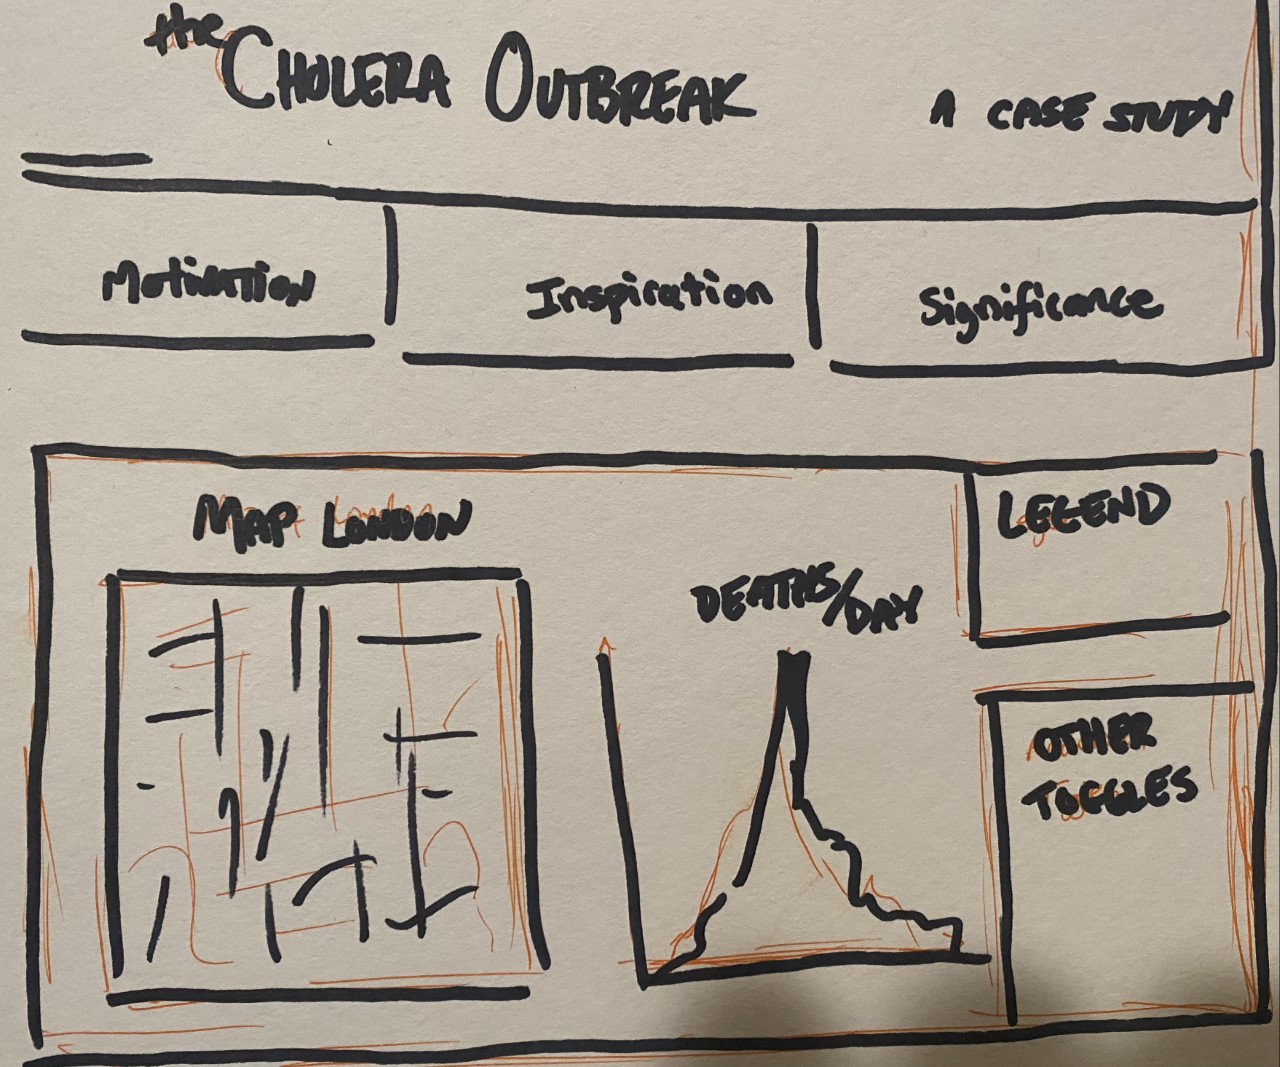 the CHOLERA OUTBREAK
A CASE STUDY
Motivation
Inspiration
Significance
MAP LONDON
DEATHS/DAY
LEGEND
OTHER
TOGGLES